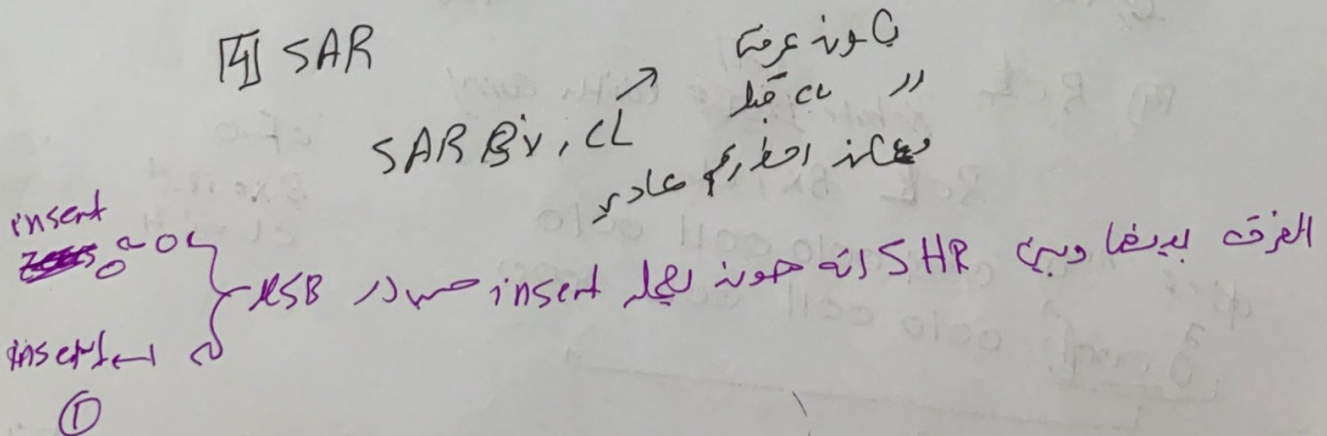 [4] SAR
SAR BX, CL
بكون عرفت
ال CL قبل
ممكن احط رقم عادي
الفرق بينها وبين SHR انه هون بعمل insert حسب ال MSB
0 insert 0
1 insert
1